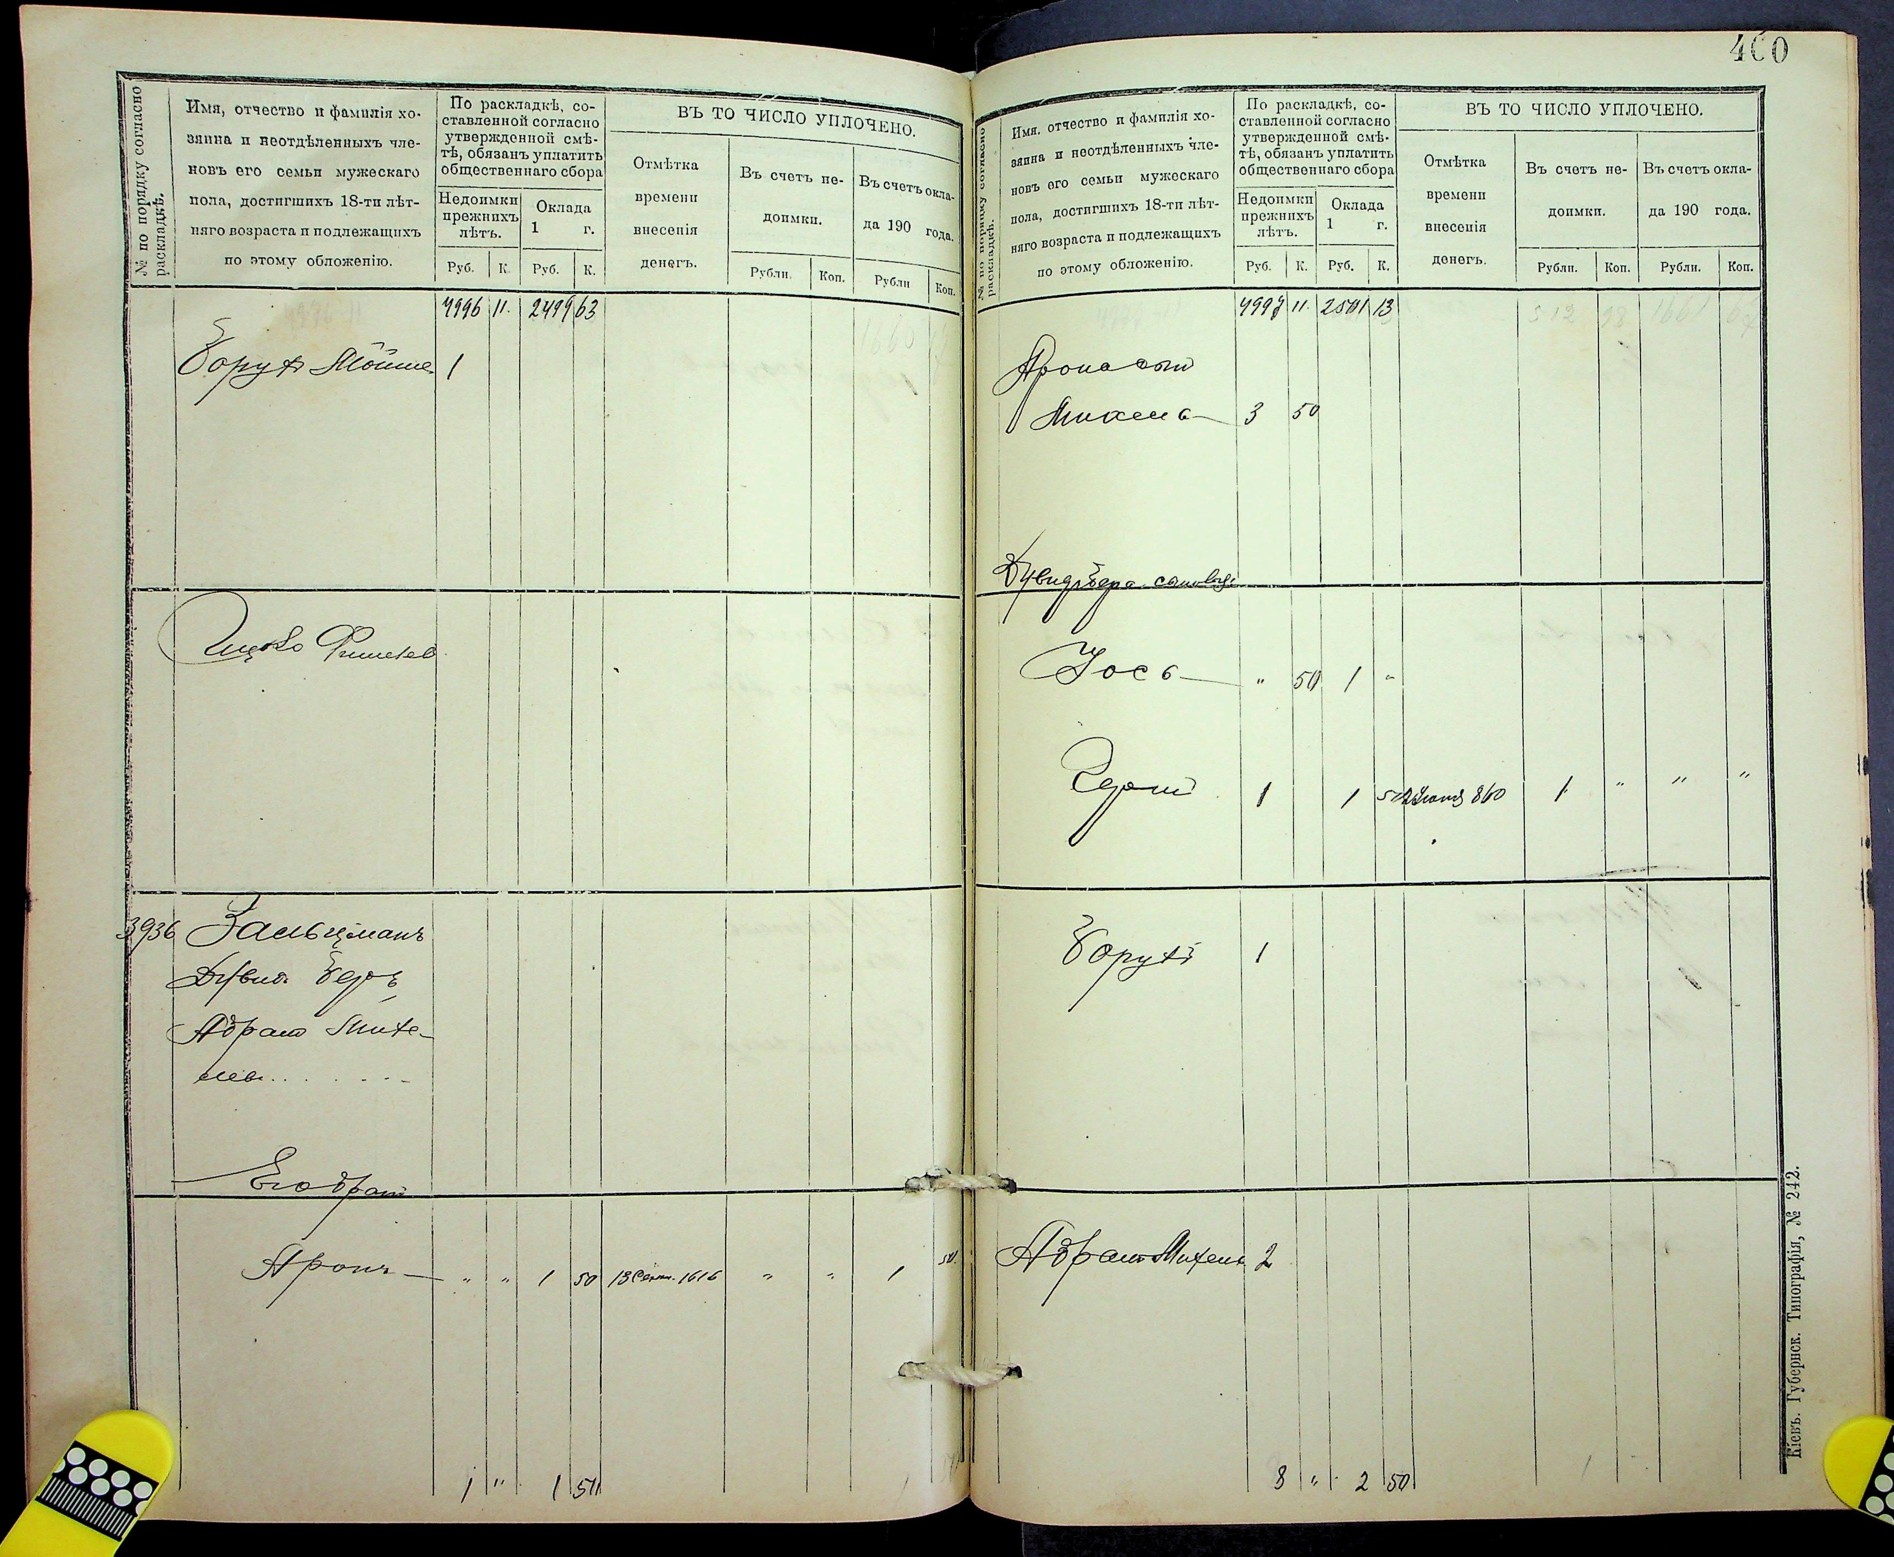 400
№ по порядку согласно раскладкѣ.
Имя, отчество и фамилія хо-
зяина и неотдѣленныхъ чле-
новъ его семьи мужескаго
пола, достигшихъ 18-ти лѣт-
няго возраста и подлежащихъ
по этому обложенію.
По раскладкѣ, со-
ставленной согласно
утвержденной смѣ-
тѣ, обязанъ уплатить
общественнаго сбора
Недоимки
прежнихъ
лѣтъ.
Оклада
1 г.
Руб. К. Руб. К.
ВЪ ТО ЧИСЛО УПЛОЧЕНО.
Отмѣтка
времени
внесенія
денегъ.
Въ счетъ не-
доимки.
Рубли. Коп.
Въ счетъ окла-
да 190 года.
Рубли Коп.
4996 11. 2499 63
Борухъ Мойше 1
Ицко
3936 Зальцманъ
Дувидъ Беръ
Абрамъ Михе-
левъ.......
Его братъ
Аронъ — " " 1 50 13 Сент. 1616 " " 1 50
1 " 1 50
№ по порядку согласно раскладкѣ.
Имя, отчество и фамилія хо-
зяина и неотдѣленныхъ чле-
новъ его семьи мужескаго
пола, достигшихъ 18-ти лѣт-
няго возраста и подлежащихъ
по этому обложенію.
По раскладкѣ, со-
ставленной согласно
утвержденной смѣ-
тѣ, обязанъ уплатить
общественнаго сбора
Недоимки
прежнихъ
лѣтъ.
Оклада
1 г.
Руб. К. Руб. К.
ВЪ ТО ЧИСЛО УПЛОЧЕНО.
Отмѣтка
времени
внесенія
денегъ.
Въ счетъ не-
доимки.
Рубли. Коп.
Въ счетъ окла-
да 190 года.
Рубли. Коп.
4997 11. 2501 13
Арона сынъ
Михель — 3 50
Дувидъ Бера сыновья
Іось — " 50 1 "
Герш 1 1 50 860 1 " " "
Борухъ 1
Абрамъ Михель 2
8 " 2 50
Кіевъ. Губернск. Типографія, № 242.